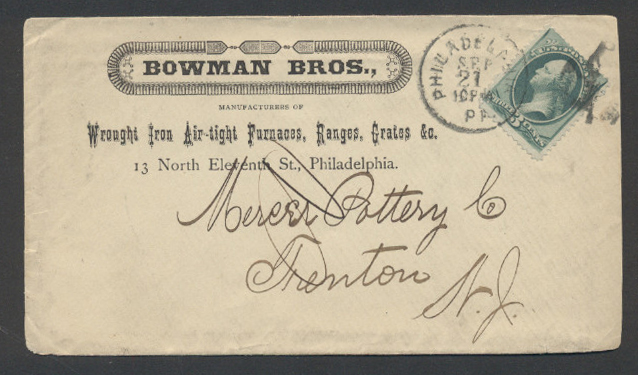 BOWMAN BROS.,
MANUFACTURERS OF
Wrought Iron Air-tight Furnaces, Ranges, Grates &c.
13 North Eleventh St., Philadelphia.
SEP
21
PA
Mercer Pottery Co
Trenton
N.J.